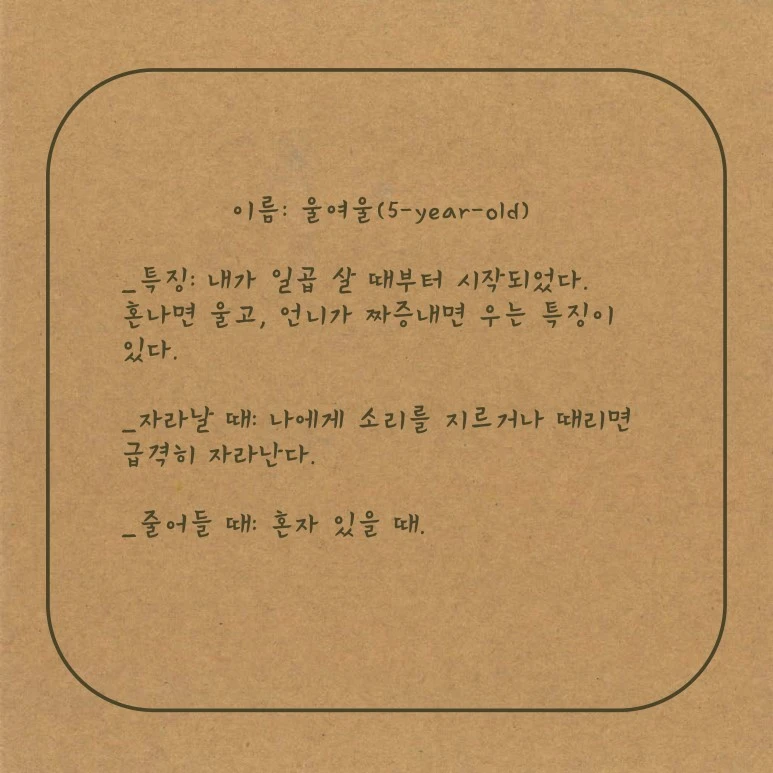 이름: 울여울(5-year-old)
_특징: 내가 일곱 살 때부터 시작되었다.
혼나면 울고, 언니가 짜증내면 우는 특징이
있다.
_자라날 때: 나에게 소리를 지르거나 때리면
급격히 자라난다.
_줄어들 때: 혼자 있을 때.